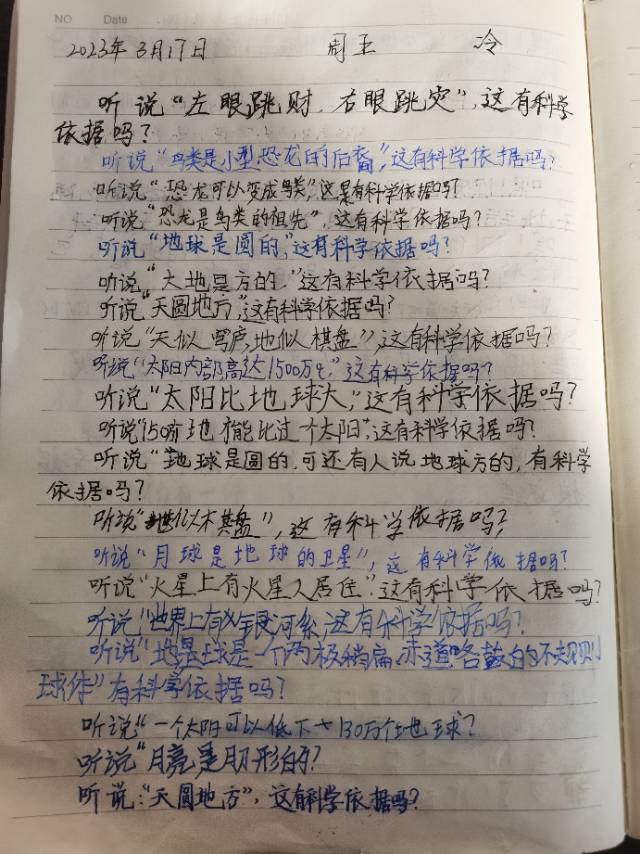 NO Date
2023年3月17日 周五 冷
听说“左眼跳财,右眼跳灾”,这有科学
依据吗?
听说“鸟类是小型恐龙的后裔”,这有科学依据吗?
听说“恐龙可以变成鸟类”这是有科学依据吗?
听说“恐龙是鸟类的祖先”,这有科学依据吗?
听说“地球是圆的”,这有科学依据吗?
听说“大地是方的,”这有科学依据吗?
听说“天圆地方”,这有科学依据吗?
听说“天似穹庐,地似棋盘”,这有科学依据吗?
听说“太阳内部高达1500万℃,”这有科学依据吗?
听说“太阳比地球大,”这有科学依据吗?
听说“150万地才能比过一个太阳”,这有科学依据吗?
听说“地球是圆的,可还有人说地球方的,有科学
依据吗?
听说“地似棋盘”,这有科学依据吗?
听说“月球是地球的卫星”,这有科学依据吗?
听说“火星上有火星人居住”这有科学依据吗?
听说“世界上有银河系,这有科学依据吗?
听说“地球是一个两极稍扁,赤道略鼓的不规则
球体”有科学依据吗?
听说“一个太阳可以低下十130万个地球?
听说“月亮是月形的?
听说:“天圆地方”,这有科学依据吗?